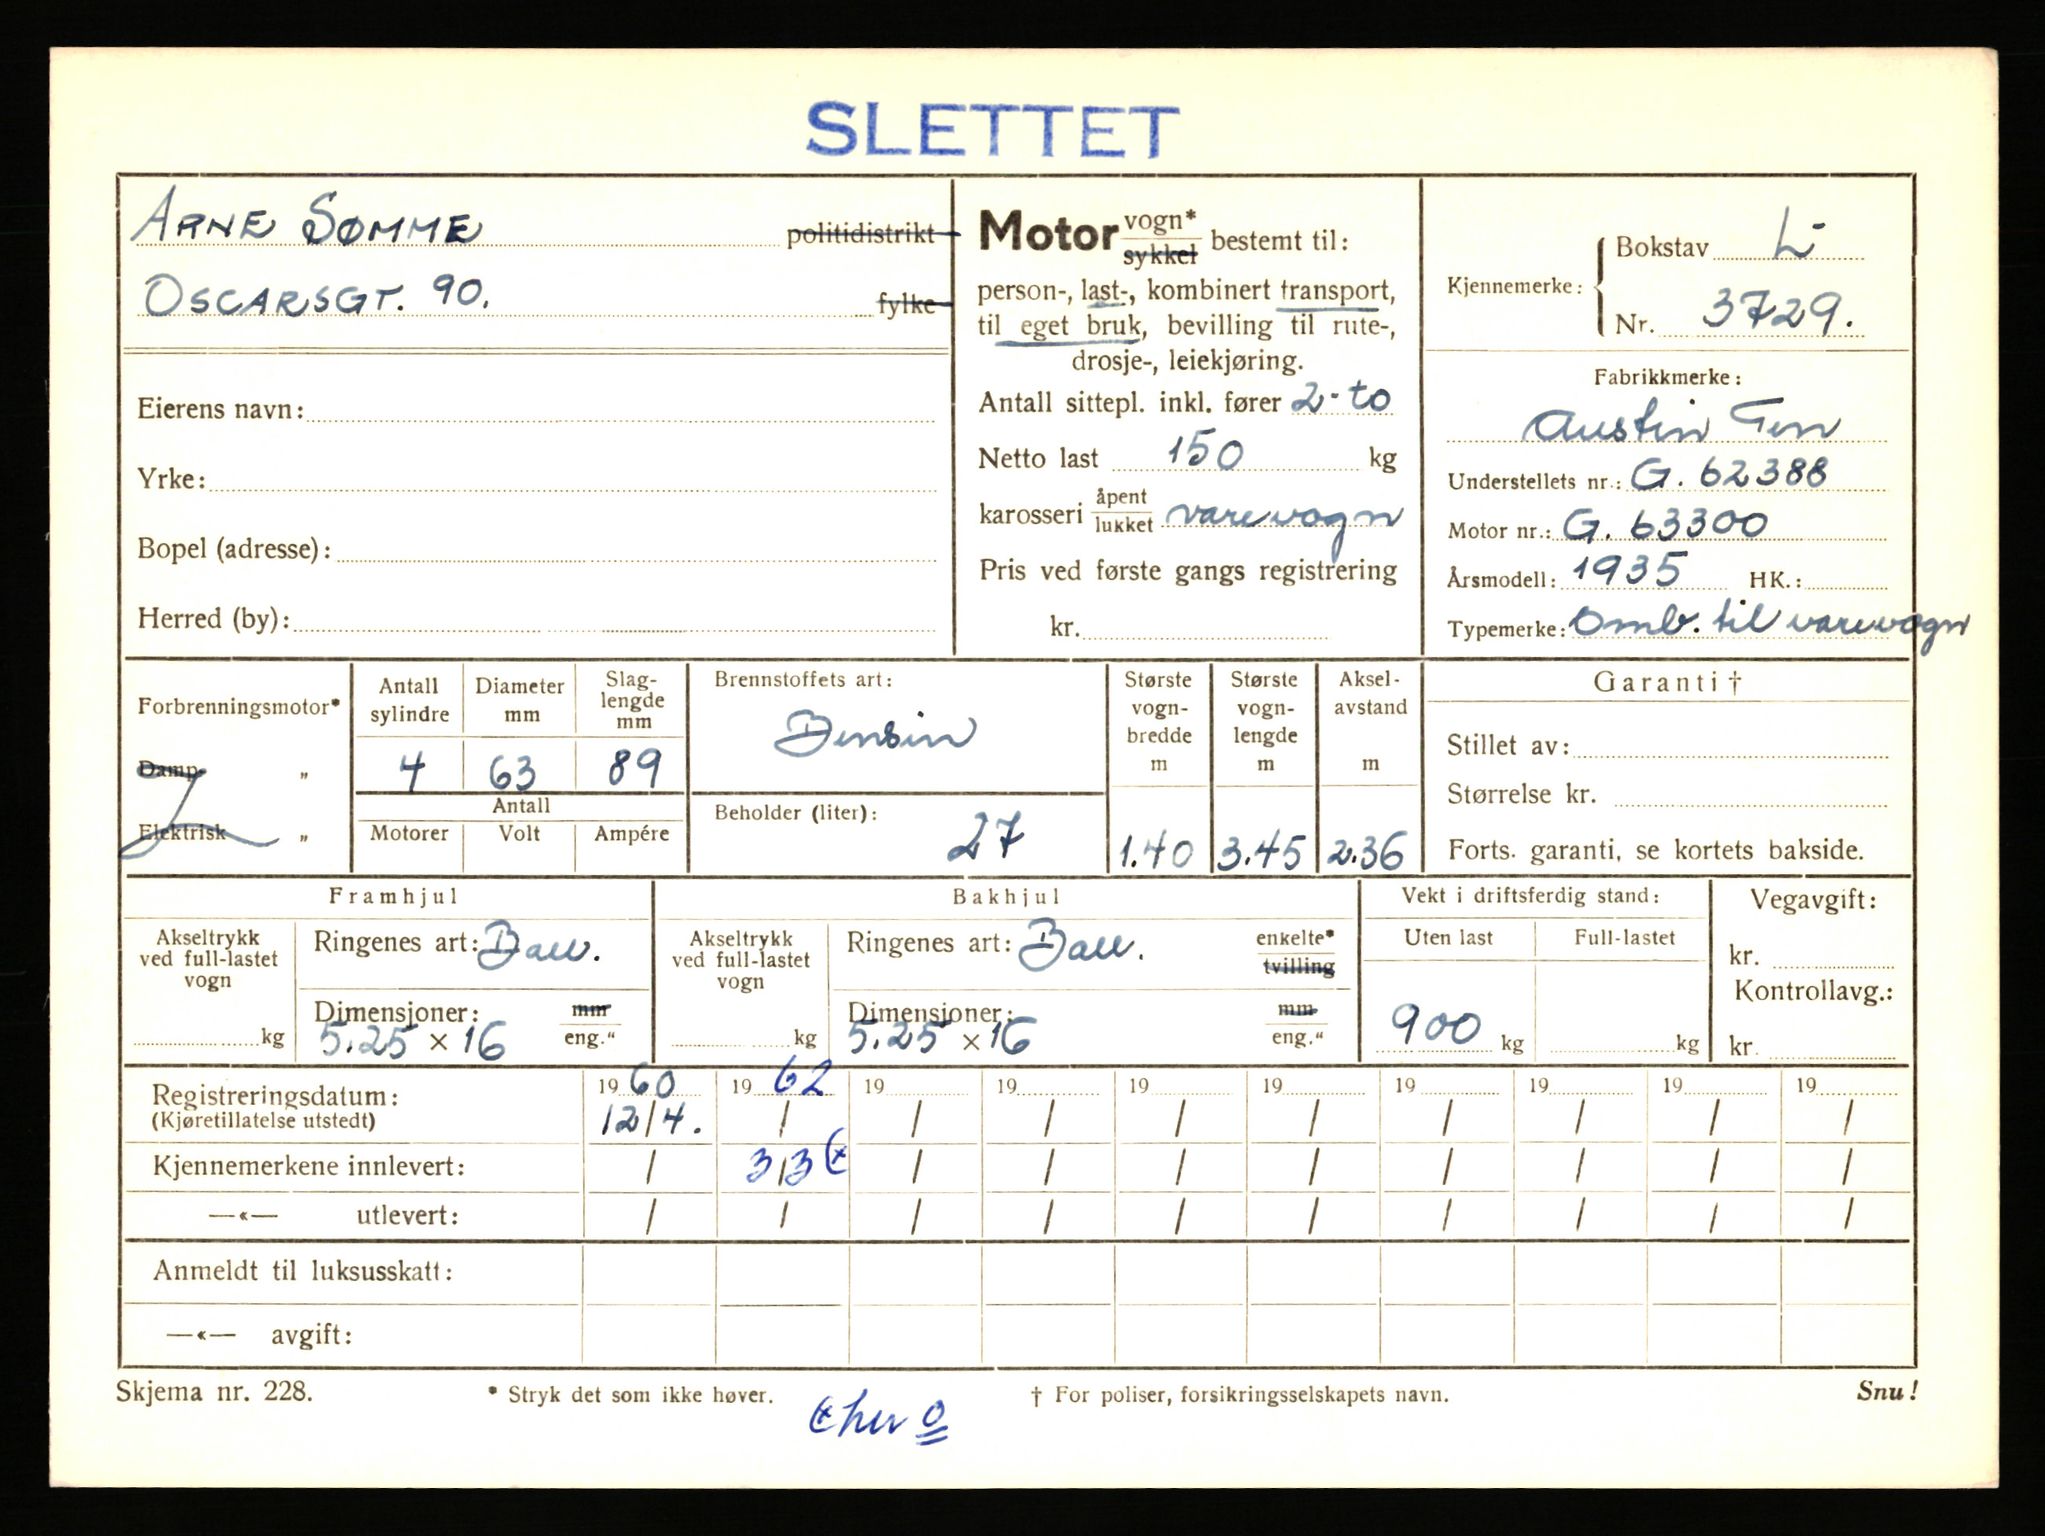 SLETTET
ARNE SØMME politidistrikt
OSCARSGT. 90. fylke
Eierens navn:
Yrke:
Bopel (adresse):
Herred (by):
Motor vogn* sykkel bestemt til:
person-, last-, kombinert transport,
til eget bruk, bevilling til rute-,
drosje-, leiekjøring.
Antall sittepl. inkl. fører 2-to
Netto last 150 kg
karosseri åpent lukket varevogn
Pris ved første gangs registrering
kr.
Kjennemerke: Bokstav L-
Nr. 3729.
Fabrikkmerke:
Austin Ten
Understellets nr.: G. 62388
Motor nr.: G. 63300
Årsmodell: 1935 HK.:
Typemerke: Omb. til varevogn
Forbrenningsmotor*
Damp- "
Elektrisk "
Antall sylindre
Diameter mm
Slag-lengde mm
4 63 89
Antall
Motorer Volt Ampére
Brennstoffets art:
Bensin
Beholder (liter):
27
Største vogn-bredde m
1.40
Største vogn-lengde m
3.45
Aksel-avstand m
2.36
Garanti †
Stillet av:
Størrelse kr.
Forts. garanti, se kortets bakside.
Framhjul
Akseltrykk
ved full-lastet
vogn
kg
Ringenes art: Ball.
Dimensjoner: mm
5.25 × 16 eng."
Bakhjul
Akseltrykk
ved full-lastet
vogn
kg
Ringenes art: Ball. enkelte*
tvilling
Dimensjoner: mm
5.25 × 16 eng."
Vekt i driftsferdig stand:
Uten last Full-lastet
900 kg kg
Vegavgift:
kr.
Kontrollavg.:
kr.
Registreringsdatum: 19 60 19 62 19 19 19 19 19 19 19 19
(Kjøretillatelse utstedt) 12/4. / / / / / / / / /
Kjennemerkene innlevert: / 3/3 (* / / / / / / / /
—«— utlevert: / / / / / / / / / /
Anmeldt til luksusskatt:
—«— avgift:
Skjema nr. 228. * Stryk det som ikke høver. † For poliser, forsikringsselskapets navn. Snu!